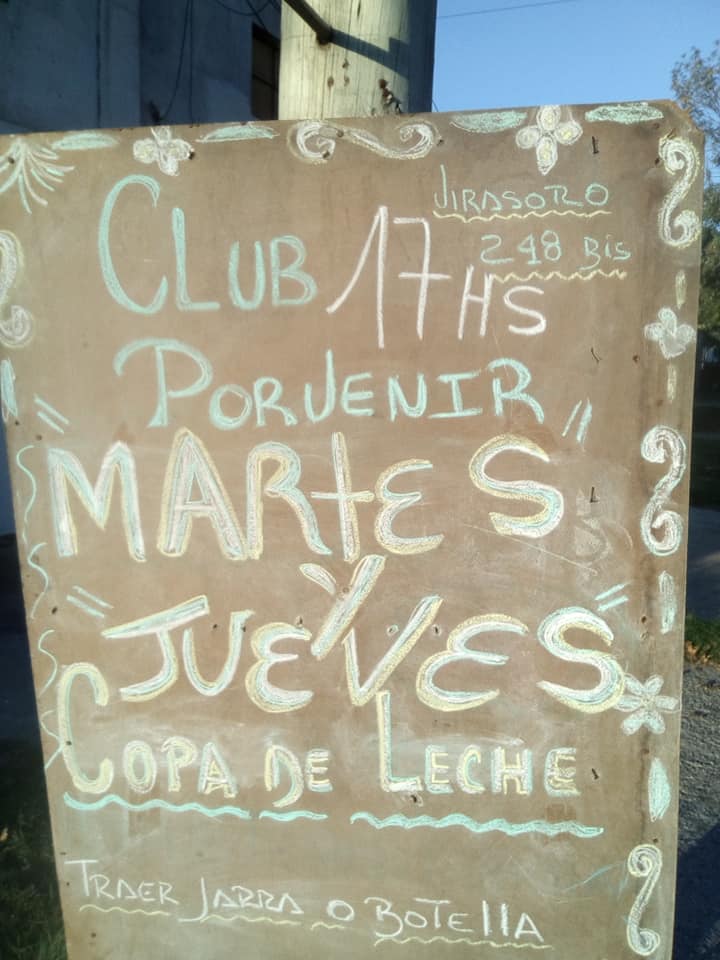 VIRASORO
248 BIS
CLUB 17HS
PORVENIR
"MARTES"
Y
"JUEVES"
COPA DE LECHE
TRAER JARRA O BOTELLA